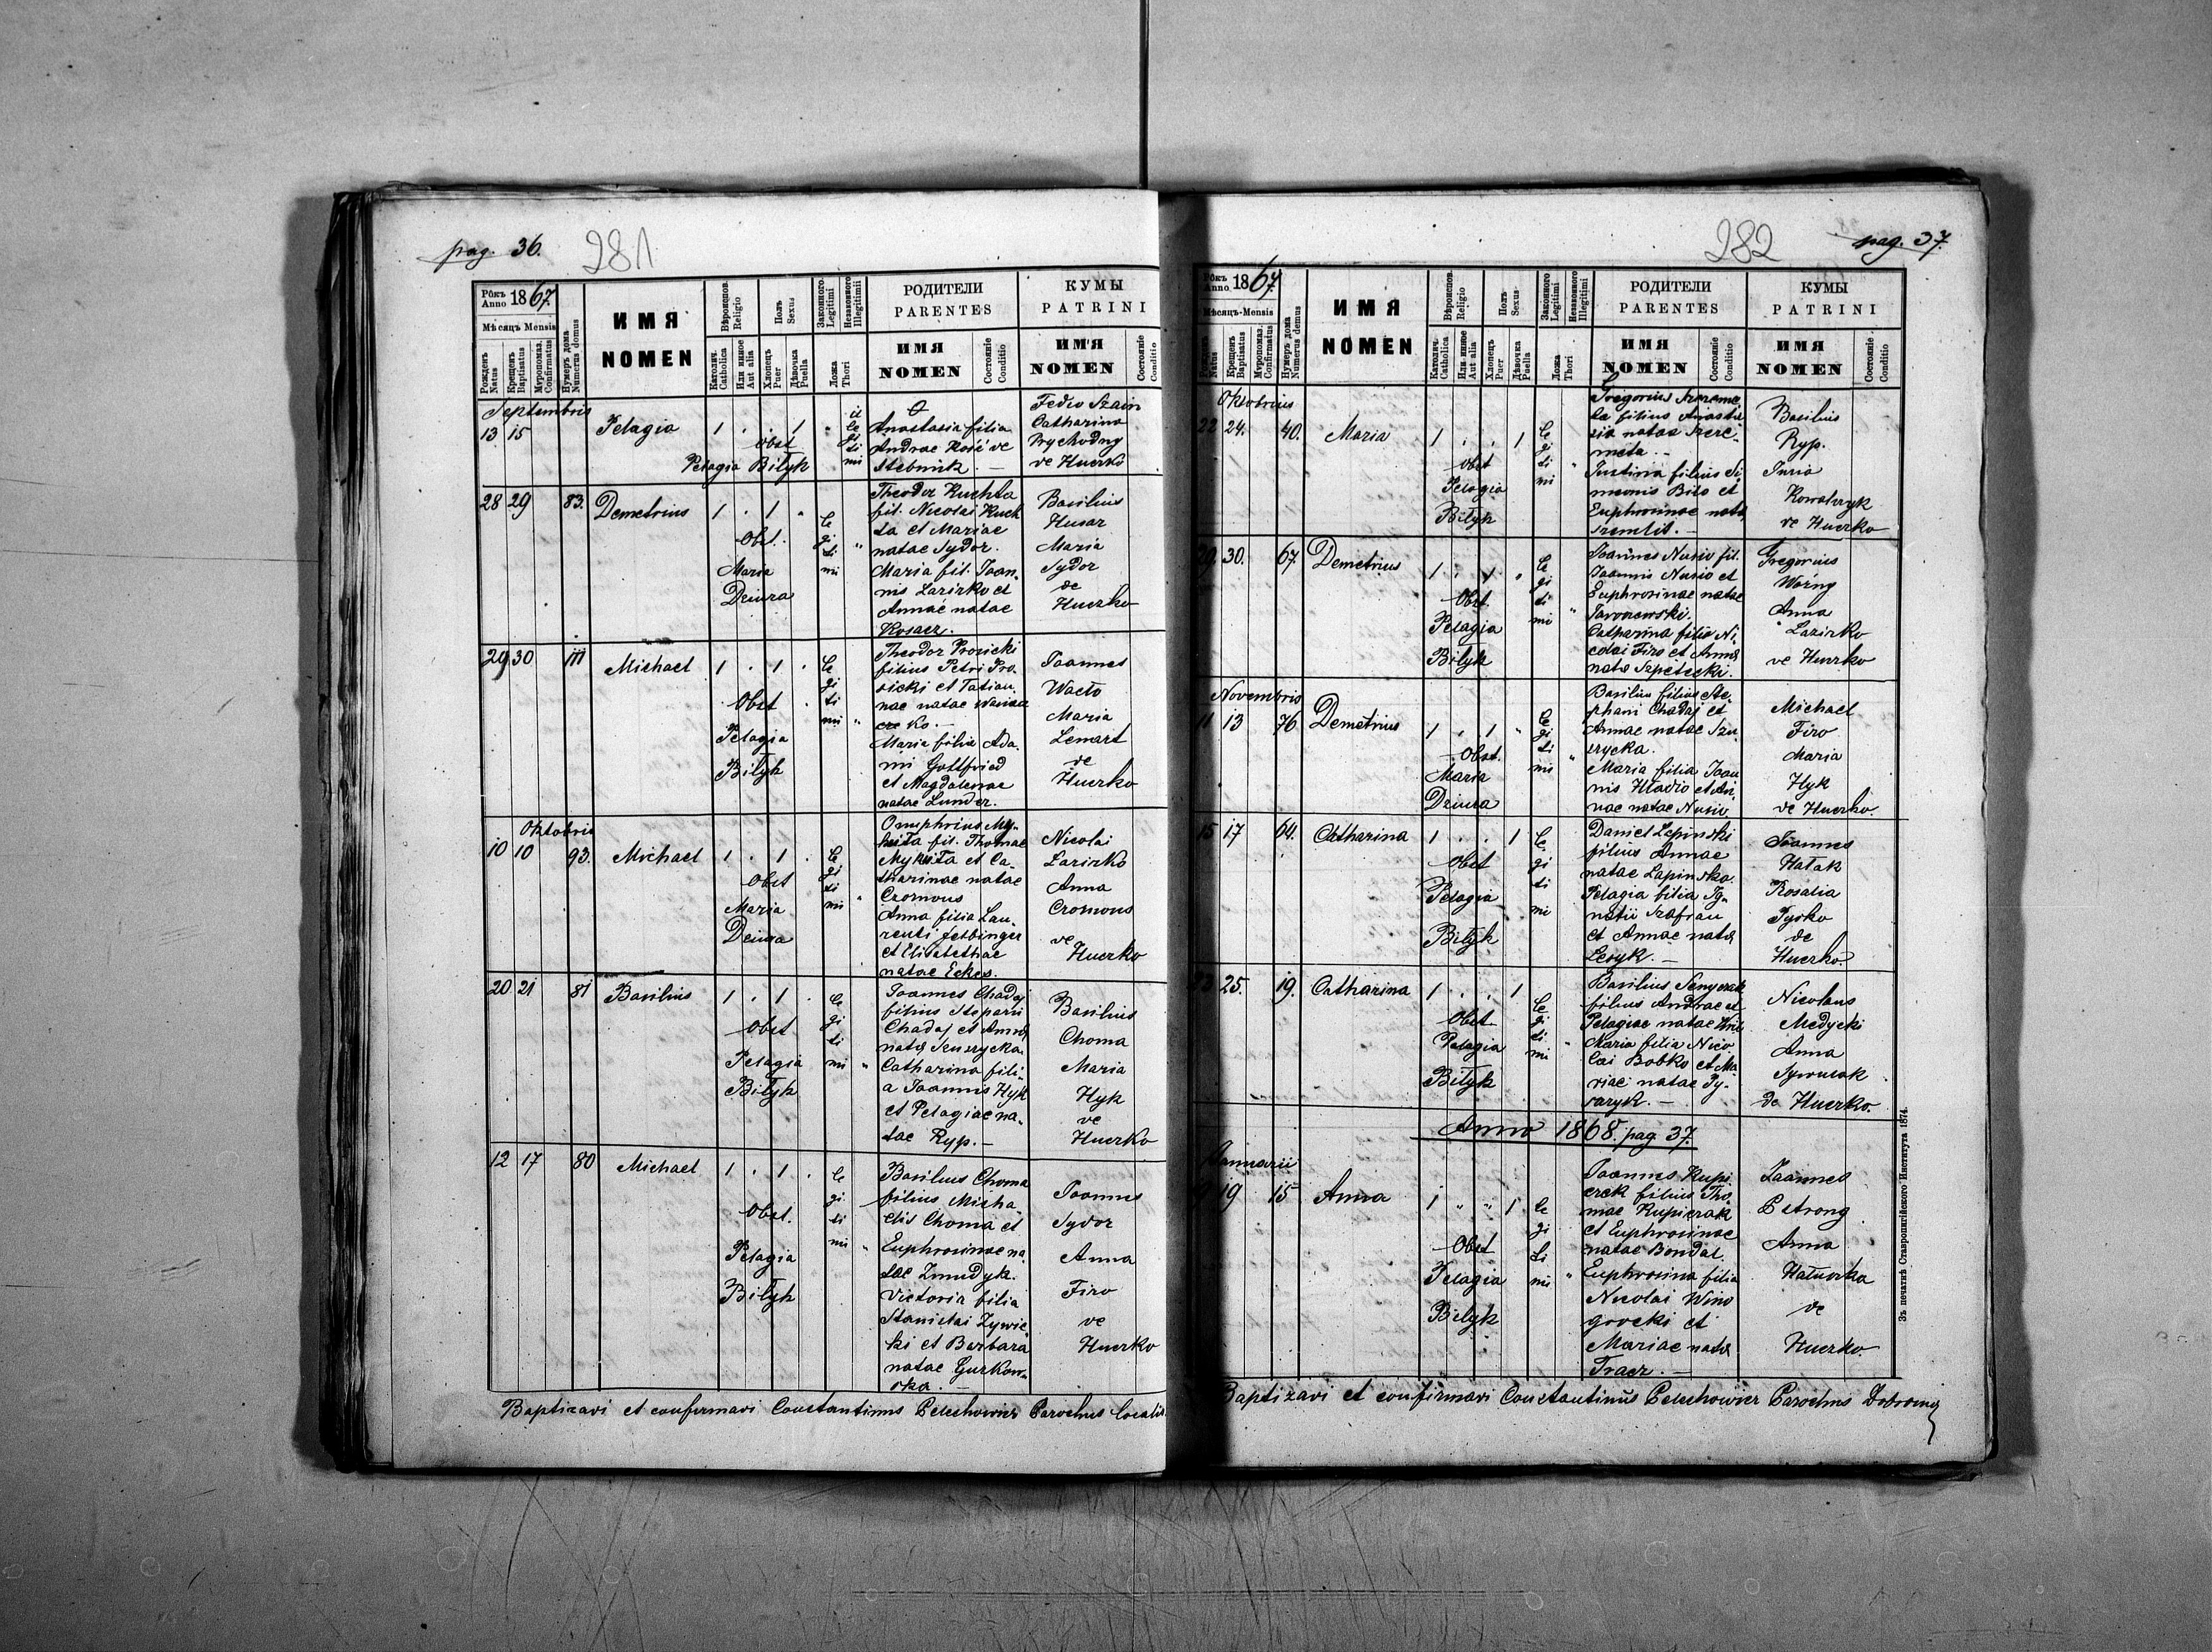 pag. 36.
281
Рôкъ Anno 1867.
Мѣсяцъ Mensis
Рожденъ Natus
Крещенъ Baptisatus
Мѵропомаз. Confirmatus
Нумеръ дома Numerus domus
ИМЯ
NOMEN
Вѣроиспов. Religio
Католич. Catholica
Или инное Aut alia
Полъ Sexus
Хлопецъ Puer
Дѣвочка Puella
Законного Legitimi
Незаконного Illegitimi
Ложа Thori
РОДИТЕЛИ
PARENTES
ИМЯ
NOMEN
Состояніе Conditio
КУМЫ
PATRINI
ИМЯ
NOMEN
Состояніе Conditio
Septembris
13 15 Pelagia 1 . . 1
obst
Pelagia Bilyk
ille
gi
ti
mi
Anastasia filia
Andrae Kość de
Stebnik. —
Fedio Szain
Catharina
Prychodny
de Hurko
28 29 83. Demetrius 1 . 1 .
Obst.
Maria
Dziura
le
gi
ti
mi
Theodor Kuchta
fil. Nicolai Kuch
ta et Mariae
natae Sydor.
Maria fil. Joan.
nis Lazirko et
Annae natae
Kosacz.
Basilius
Husar
Maria
Sydor
de
Hurko
29 30 111 Michael 1 . 1 .
Obst
Pelagia
Bilyk
le
gi
ti
mi
Theodor Prosicki
filius Petri Pro.
sicki et Tatian.
nae natae
ko. —
Maria filia Ada.
mi Gottfried
et Magdalenae
natae Lunder.
Joannes
Wacło
Maria
Lenart
de
Hurko
Oktobris
10 10 93. Michael 1 . 1 .
Obst
Maria
Dziura
le
gi
ti
mi
Onuphrius My.
kita fil. Thomae
Mykita et Ca.
tharinae natae
Czornous
Anna filia Lau.
renti Felbinger
et Elisabethae
natae Eckes.
Nicolai
Lazirko
Anna
Czornous
de
Hurko
20 21 81 Basilius 1 . 1 .
Obst
Pelagia
Bilyk
le
gi
ti
mi
Joannes Chadaj
filius Stephani
Chadaj et Annae
natae Szuszycka.
Catharina fili.
a Joannis Hyk
et Pelagiae na.
tae Ryp. —
Basilius
Choma
Maria
Hyk
de
Hurko
12 17 80 Michael 1 . 1 .
Obst.
Pelagia
Bilyk
le
gi
ti
mi
Basilius Choma
filius Micha.
elis Choma et
Euphrosinae na
tae Zmudyk.
Victoria filia
Stanislai Zywic.
ki et Barbara
natae Gurkow.
ska. —
Joannes
Sydor
Anna
Firo
de
Hurko
Baptizavi et confirmavi Constantinus Pelechowicz Parochus localis
282
pag. 37.
Рôкъ Anno 1867.
Мѣсяцъ-Mensis
Рожденъ Natus
Крещенъ Baptisatus
Мѵропомаз. Confirmatus
Нумеръ дома Numerus domus
ИМЯ
NOMEN
Вѣроиспов. Religio
Католич. Catholica
Или инное Aut alia
Полъ Sexus
Хлопецъ Puer
Дѣвочка Puella
Законного Legitimi
Незаконного Illegitimi
Ложа Thori
РОДИТЕЛИ
PARENTES
ИМЯ
NOMEN
Состояніе Conditio
КУМЫ
PATRINI
ИМЯ
NOMEN
Состояніе Conditio
Oktobrius
22 24. 40. Maria 1 . . 1
obst
Pelagia
Bilyk
le
gi
ti
mi
Gregorius Szereme
ta filius Anasta
sia natae Szere.
meta. —
Justina filius Si.
meonis Bilo et
Euphrosinae nata
Szemlit. —
Basilius
Ryp.
Juria
Kowalczyk
de Hurko
29. 30. 67. Demetrius 1 . 1 .
Obst.
Pelagia
Bilyk
le
gi
ti
mi
Joannes Nusio fil.
Joannis Nusio et
Euphrosinae natae
Jaronowski.
Catharina filia Ni.
colai Firo et Annae
natae Szpetecki.
Gregorius
Woźny
Anna
Lazirko
de Hurko
Novembris
11 13 76 Demetrius 1 . 1 .
Obst.
Maria
Dziura
le
gi
ti
mi
Basilius filius Ste.
phani Chadaj et
Annae natae Szu.
szycka.
Maria filia Joan
nis Hladio et An.
nae natae Nusio
Michael
Firo
Maria
Hyk
de Hurko.
15 17 64. Catharina 1 . . 1
Obst
Pelagia
Bilyk
le
gi
ti
mi
Daniel Lepinski
filius Annae
natae Lapinska.
Pelagia filia Ig.
natii Szafran
et Annae natae
Lesyk. —
Joannes
Hałak
Rosalia
Tysko
de
Hurko.
23 25. 19. Catharina 1 . . 1
Obst.
Pelagia
Bilyk
le
gi
ti
mi
Basilius
filius Andrae et
Pelagiae natae
Maria filia Nico
lai Bobko et Ma
riae natae Py.
saryk. —
Nicolaus
Medycki
Anna
de Hurko.
Anno 1868. pag 37.
Januarii
19 15 Anna 1 " " 1
Obst
Pelagia
Bilyk
le
gi
ti
mi
Joannes Kupi
czek filius Tho.
mae Kupiczak
et Euphrosinae
natae Bondar.
Euphrosina filia
Nicolai Wino
grocki et
Mariae natae
Tracz. —
Joannes
Petrong
Anna
de
Hurko.
Baptizavi et confirmavi Constantinus Pelechowicz Parochus
Зъ печатнѣ Ставропигійского Института 1874.